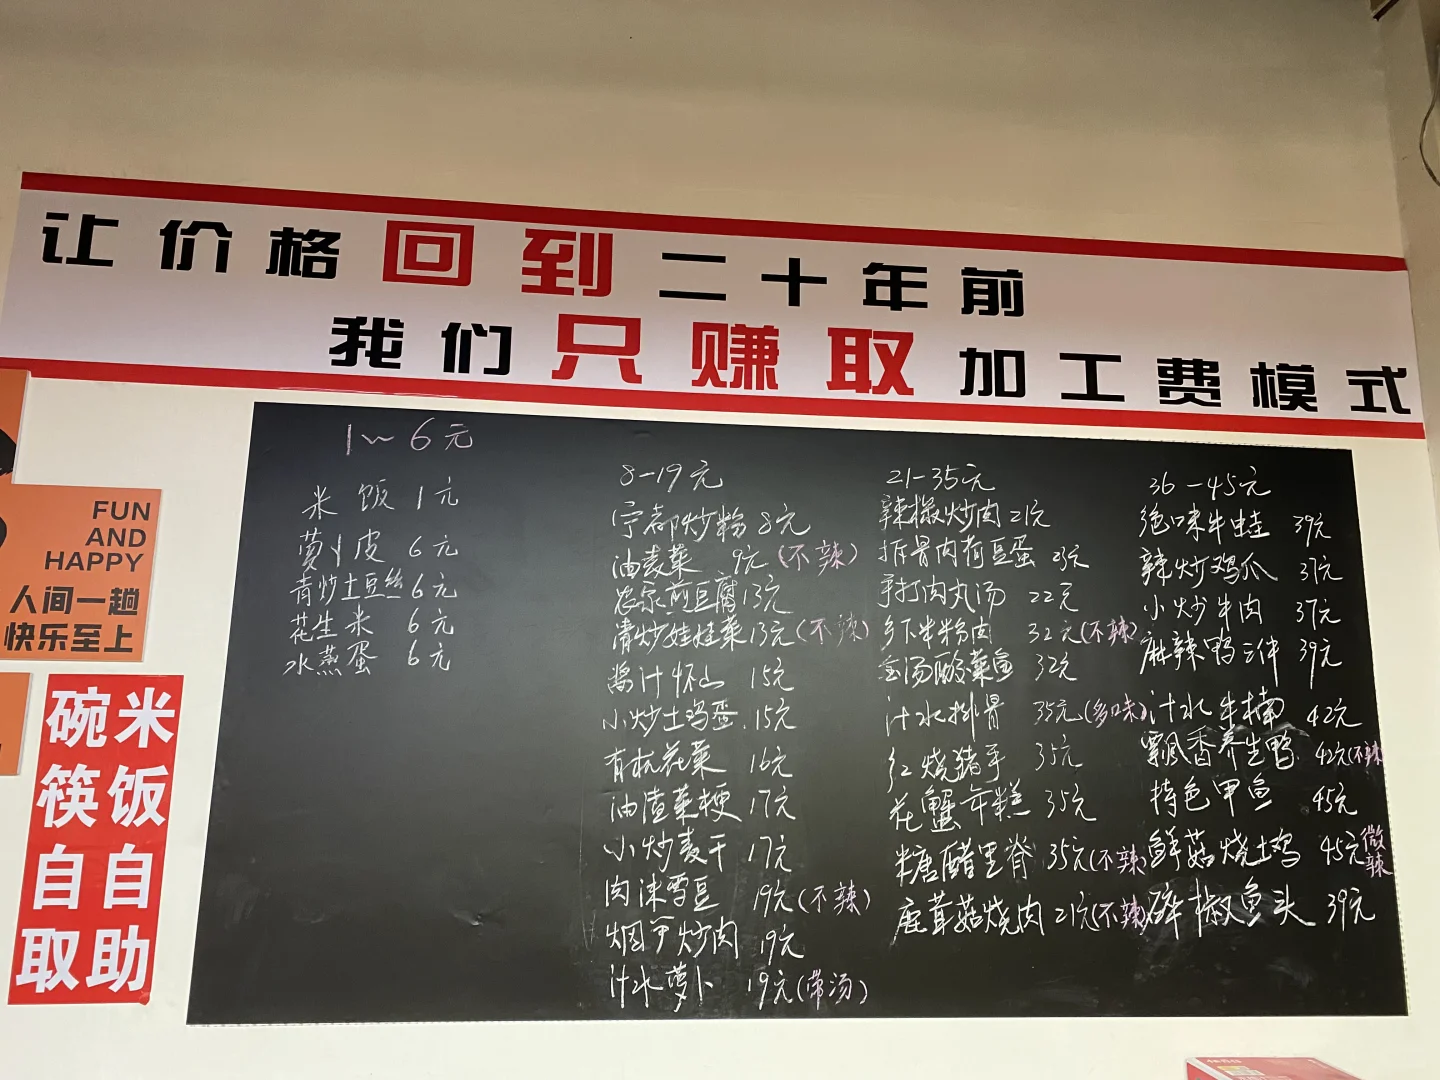 让价格回到二十年前
我们只赚取加工费模式
FUN
AND
HAPPY
人间一趟
快乐至上
碗筷自取
米饭自助
1~6元
米饭 1元
萝卜皮 6元
青炒土豆丝 6元
花生米 6元
水蒸蛋 6元
8-19元
宁都炒粉 8元
油麦菜 9元(不辣)
农家煎豆腐 13元
清炒娃娃菜 13元(不辣)
酱汁怀山 15元
小炒土鸡蛋 15元
有机花菜 16元
油渣菜梗 17元
小炒麦干 17元
肉沫雪豆 19元(不辣)
烟笋炒肉 19元
汁水萝卜 19元(带汤)
21-35元
辣椒炒肉 21元
拆骨肉荷豆蛋
手打肉丸汤 22元
乡下米粉肉 32元(不辣)
金汤酸菜鱼 32元
汁水排骨 35元(多味)
红烧猪手 35元
花蟹年糕 35元
糖醋里脊 35元(不辣)
鹿茸菇烧肉 21元(不辣)
36-45元
绝味牛蛙 39元
辣炒鸡爪 37元
小炒牛肉 37元
麻辣鸭三件 39元
汁水牛楠 42元
飘香养生鸭 42元(不辣
特色甲鱼 45元
鲜菇烧土鸡 45元微辣
椒鱼头 39元